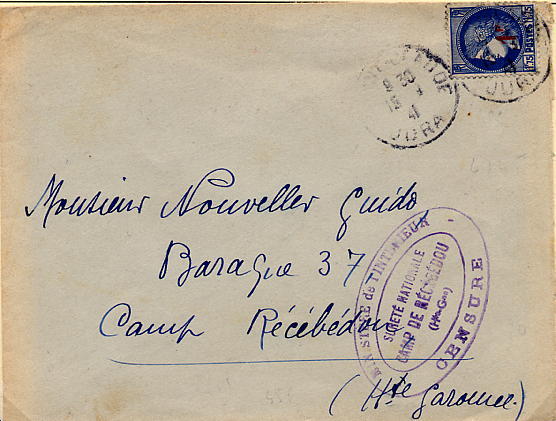 30
41
JURA
JURA
POSTES 1F75
Monsieur Nouveller Guido
Baraque 37
Camp Récébédou
(Hte Garonne.)
MINISTÈRE de l'INTÉRIEUR
SURETÉ NATIONALE
CAMP DE RÉCÉBÉDOU
(Hte Gne)
CENSURE